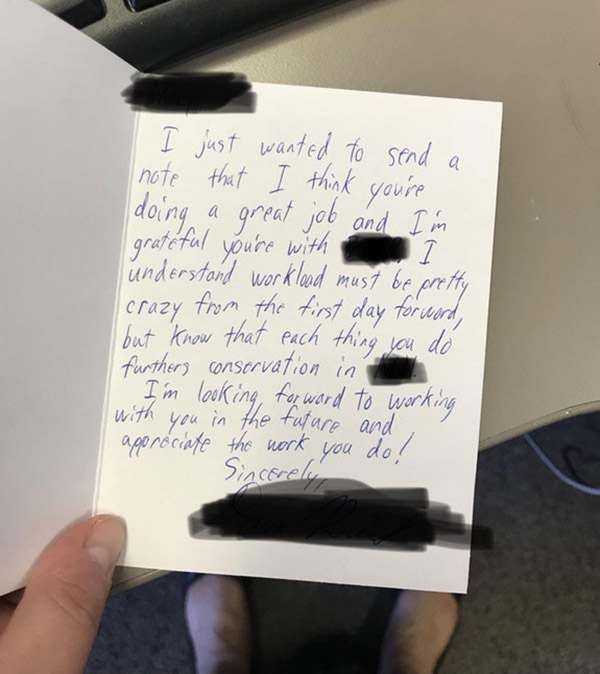 I just wanted to send a
note that I think you're
doing a great job and I'm
grateful you're with I
understand workload must be pretty
crazy from the first day forward,
but know that each thing you do
furthers conservation in
I'm looking forward to working
with you in the future and
appreciate the work you do!
Sincerely,